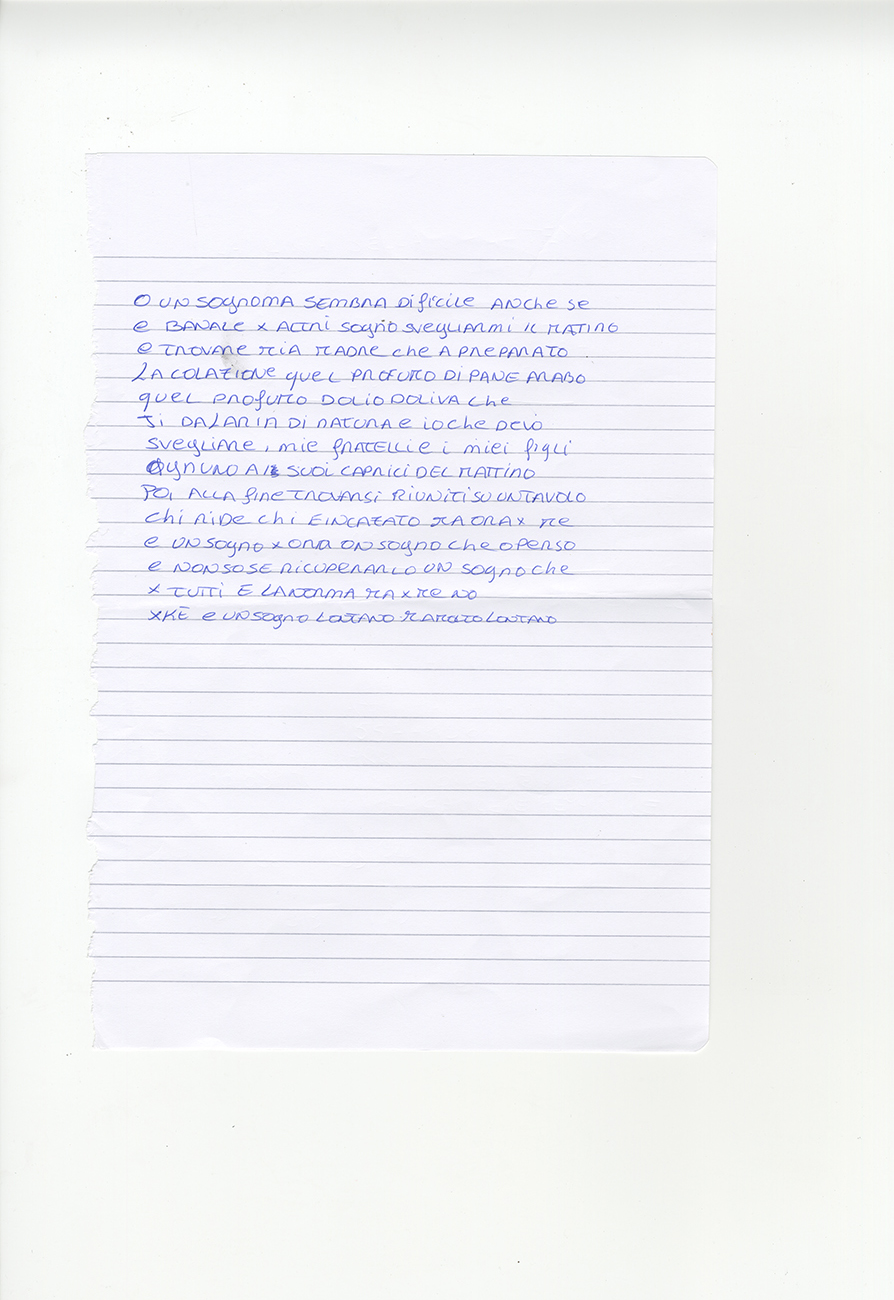 O UN SOGNOMA SEMBRA DifíCILE ANChe SE
e BANALE x ALTRI SOGNO SVEGLIARMI IL MATINO
e TROVARE MIA MADRE che A PREPARATO
LA COLAZIONE QUEL PROFUMO DI PANE ARABO
QUEL PROFUMO DOLIO DOLIVA Che
TI DALARIA DI NATURA e IO CHE DEVO
SVEGLIARE, mie fRATELLI e i miei figli
OGNUNO A I SUOI CAPRICI DEL MATTINO
POI ALLA fine TROVARSI RIUNITI SU UNTAVOLO
Chi RIDE Chi E INCAZATO MA ORA x ME
e UN SOGNO x ORA UN SOGNO Che O PERSO
e NON SO SE RICUPERARLO UN SOGNO che
x TUTTI E LA NORMA MA x ME NO
xKÈ e UN SOGNO LONTANO MA MOLTO LONTANO